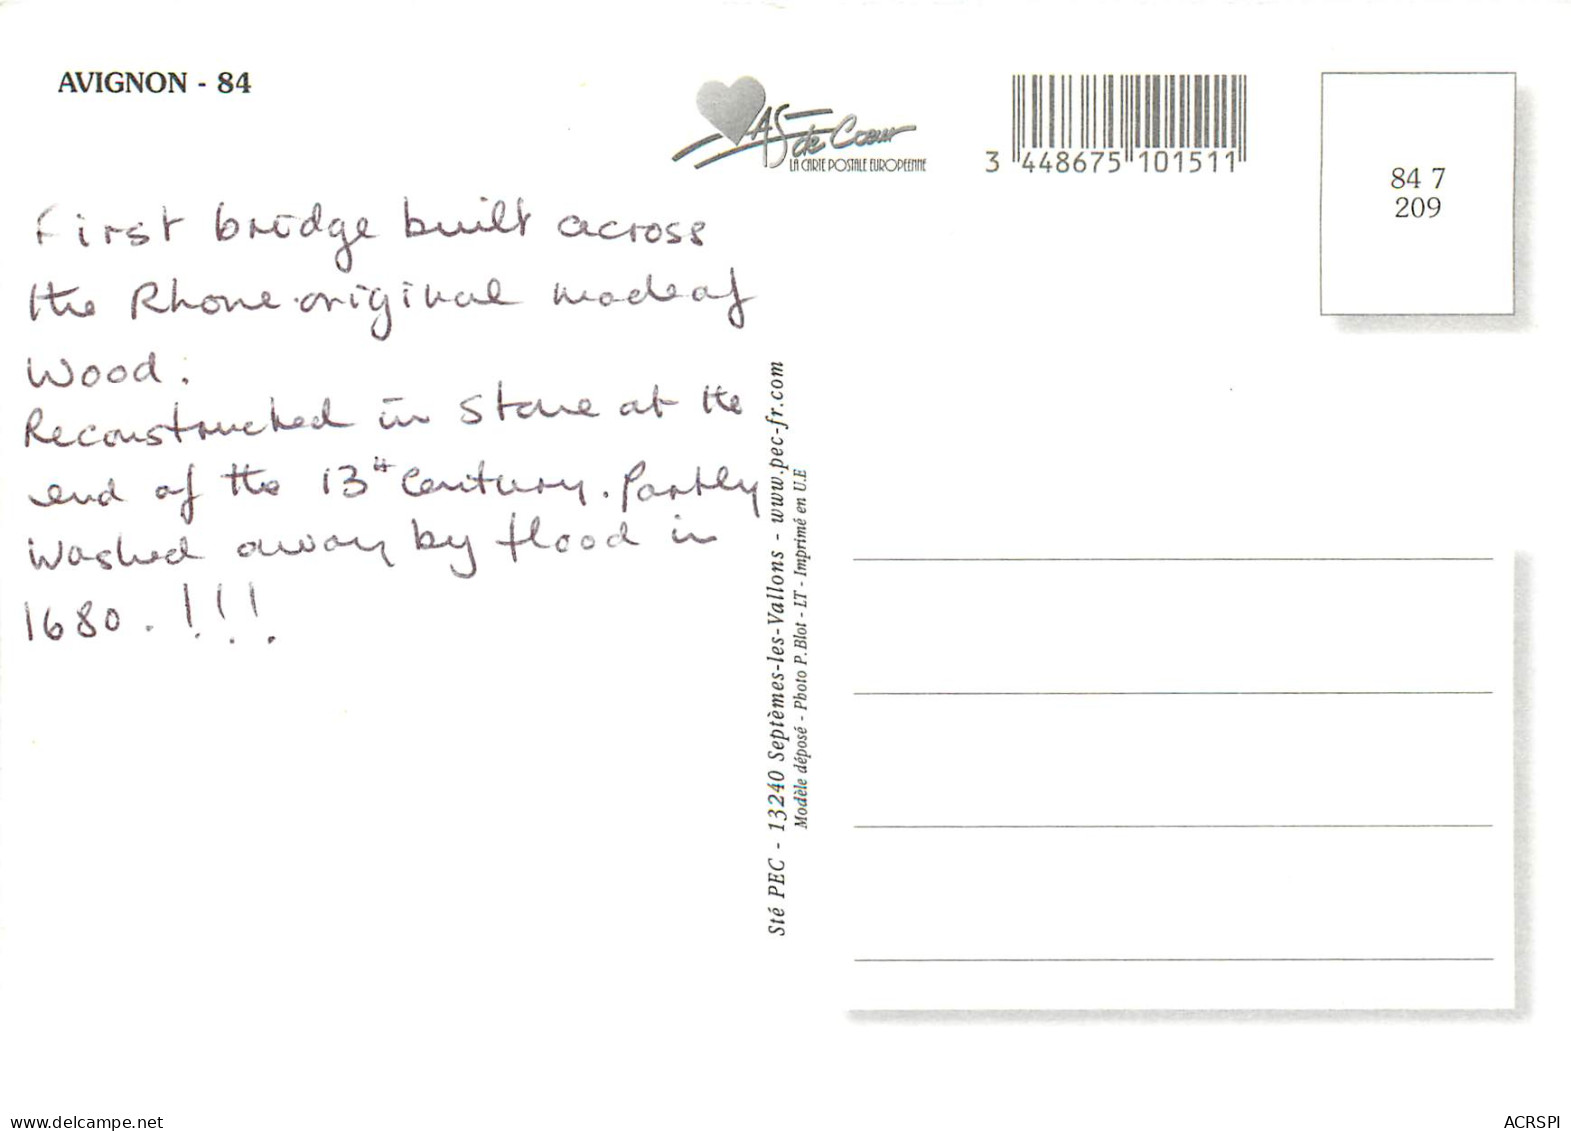 AVIGNON - 84
AS de Cœur
LA CARTE POSTALE EUROPEENNE
3 448675 101511
84 7
209
First bridge built across
the Rhone original made of
Wood.
Reconstructed in Stone at the
end of the 13th Century. Partly
Washed away by flood in
1680. !!!
Sté PEC - 13240 Septèmes-les-Vallons - www.pec-fr.com
Modèle déposé - Photo P.Blot - LT - Imprimé en U.E
www.delcampe.net
ACRSPI